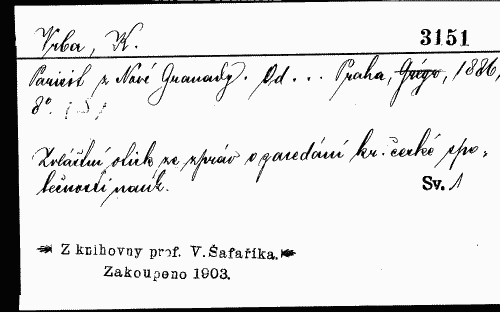 Vrba, K. 3151
Parisit z Nové Granady. Od ... Praha, Grégr, 1886,
8°. (S.)
Zvláštní otisk ze zpráv o zasedání kr. české spo-
lečnosti nauk. Sv. 1
Z knihovny prof. V. Šafaříka.
Zakoupeno 1903.